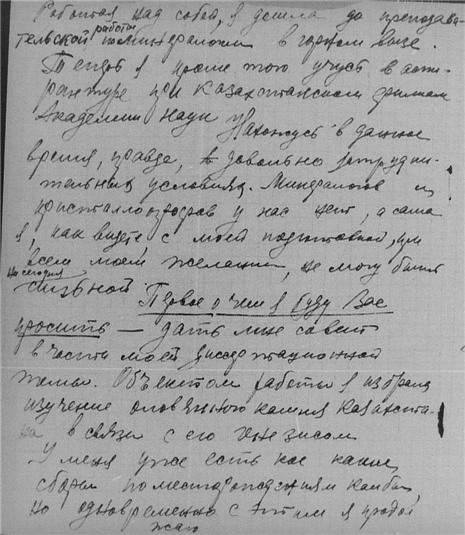 Работая над собой, я дошла до преподава-
тельской работы по минералогии в горном вузе.
Теперь я кроме того учусь в аспи-
рантуре при Казахстанском филиале
Академии наук Нахожусь в данное
время, правда, в довольно затрудни-
тельных условиях. Минералогов и
кристаллографов у нас нет, а сама
я, как видите, с моей подготовкой, при
всем моем желании, не могу быть
на сегодня
сильной Первое о чем я буду Вас
просить — дать мне совет
в части моей диссертационной
темы. Объектом работы я избрала
изучение оловянного камня Казахста-
на в связи с его генезисом
У меня уже есть кое какие
сборы по месторождениям Калбы,
но одновременно с этим я продол
жаю